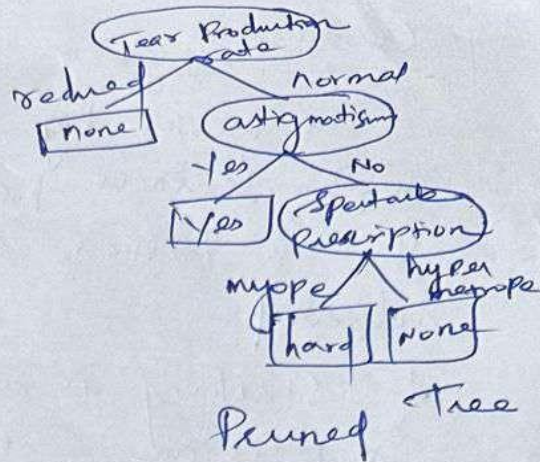 Tear Production
rate
reduced
normal
none
astigmatism
Yes
No
Yes
Spectacle
prescription
myope
hyper
metrope
hard
None
Pruned Tree